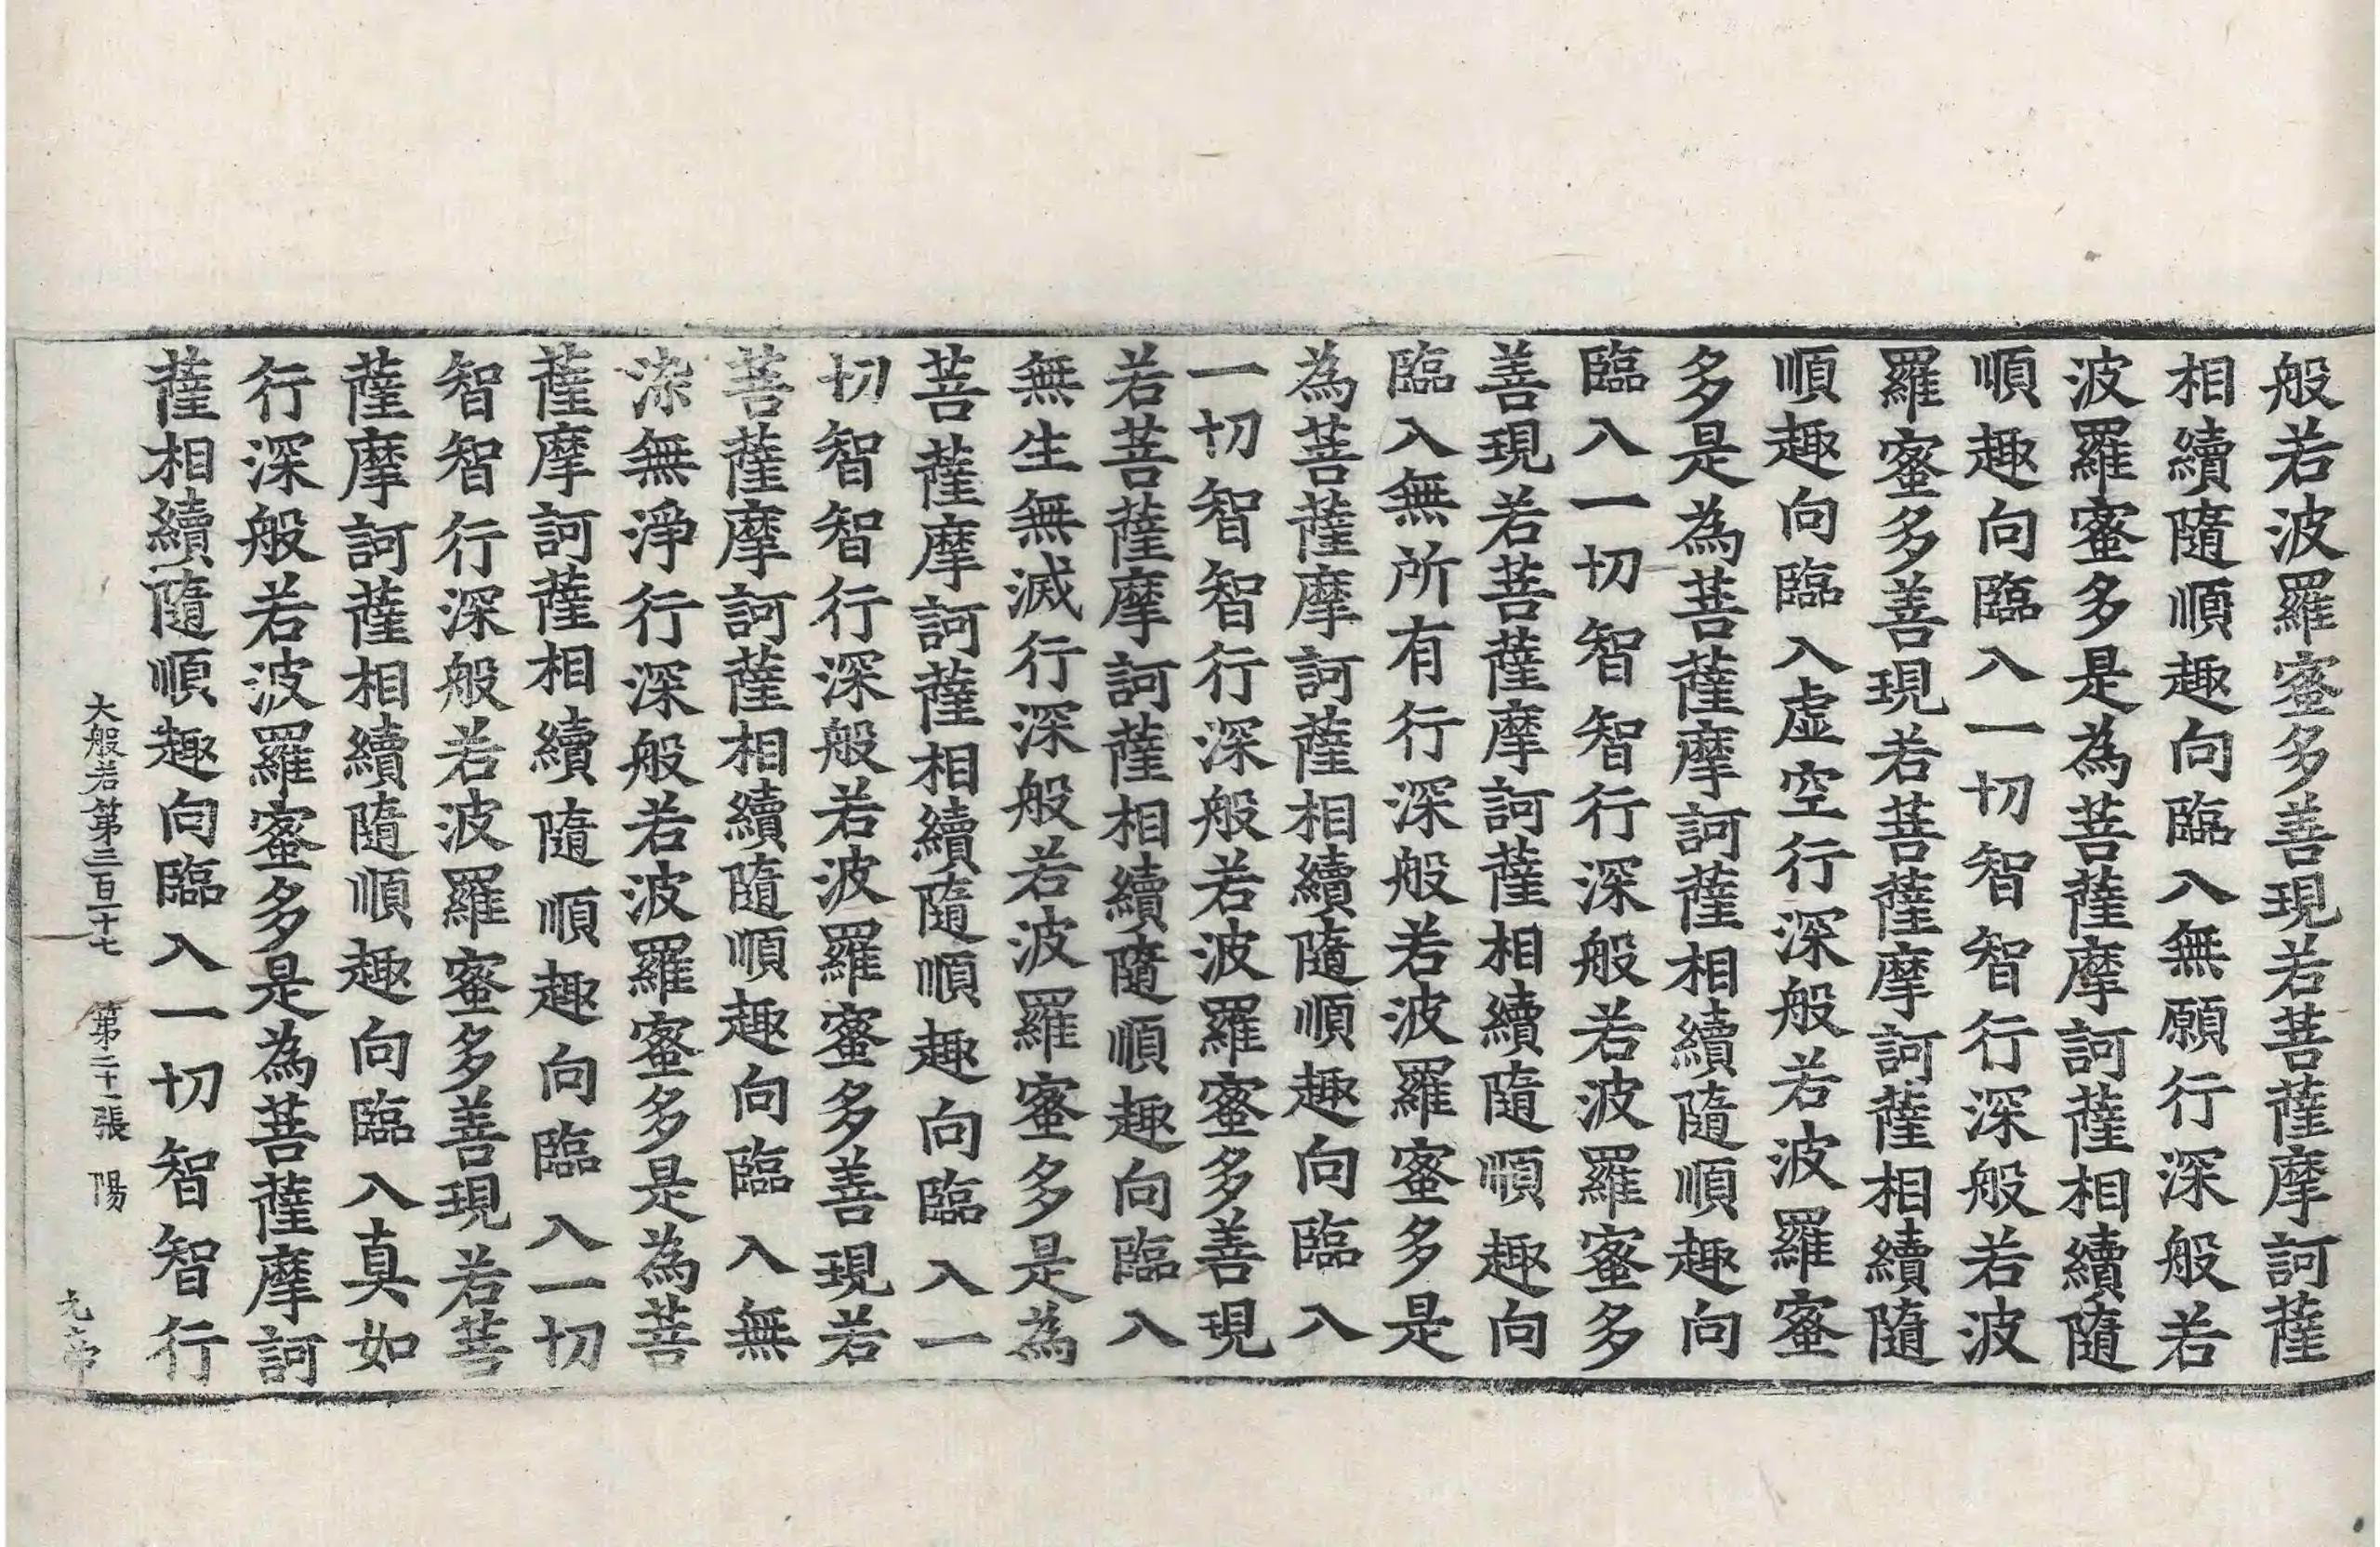 般若波羅蜜多善現若菩薩摩訶薩
相續隨順趣向臨入無願行深般若
波羅蜜多是為菩薩摩訶薩相續隨
順趣向臨入一切智智行深般若波
羅蜜多善現若菩薩摩訶薩相續隨
順趣向臨入虛空行深般若波羅蜜
多是為菩薩摩訶薩相續隨順趣向
臨入一切智智行深般若波羅蜜多
善現若菩薩摩訶薩相續隨順趣向
臨入無所有行深般若波羅蜜多是
為菩薩摩訶薩相續隨順趣向臨入
一切智智行深般若波羅蜜多善現
若菩薩摩訶薩相續隨順趣向臨入
無生無滅行深般若波羅蜜多是為
菩薩摩訶薩相續隨順趣向臨入一
切智智行深般若波羅蜜多善現若
菩薩摩訶薩相續隨順趣向臨入無
染無淨行深般若波羅蜜多是為菩
薩摩訶薩相續隨順趣向臨入一切
智智行深般若波羅蜜多善現若菩
薩摩訶薩相續隨順趣向臨入真如
行深般若波羅蜜多是為菩薩摩訶
薩相續隨順趣向臨入一切智智行
大般若第三百十七 第二十一張 陽